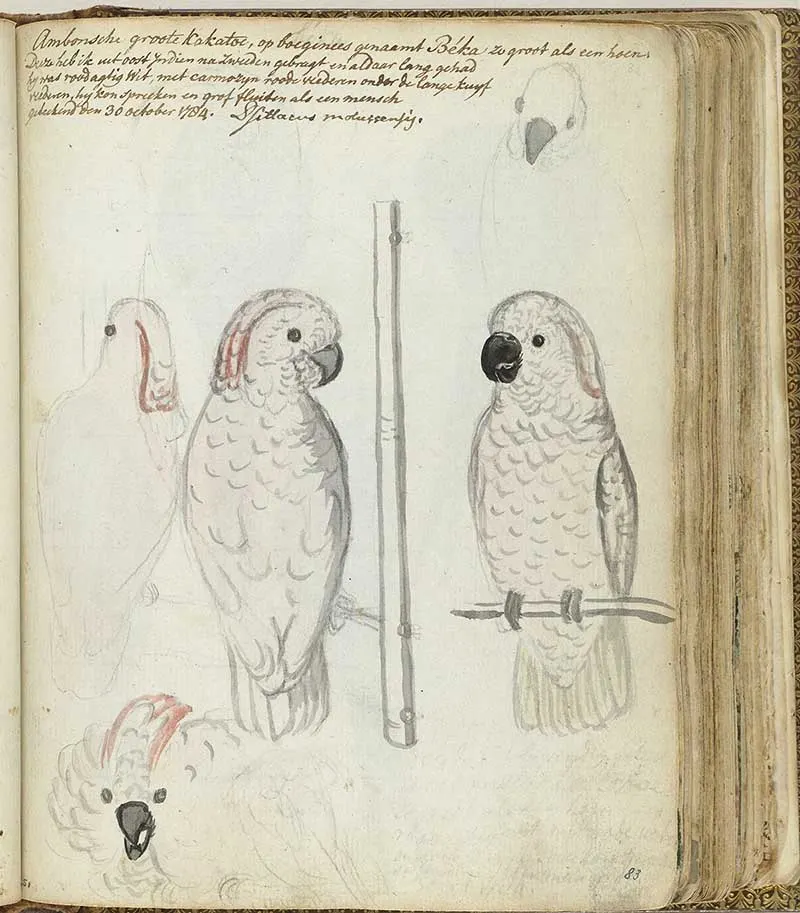 Ambonsche groote Kakatoe, op boeginees genaamt Béka zo groot als een hoen.
Deze heb ik uit oost jndien na Zweeden gebragt en aldaar lang gehad
hij was roodagtig wit, met carmozyn roode veederen onder de lange kuyf
veederen, hij kon spreeken en grof fluiten als een mensch
geteekend den 30 october 1784. Psittacus moluccensis.
83